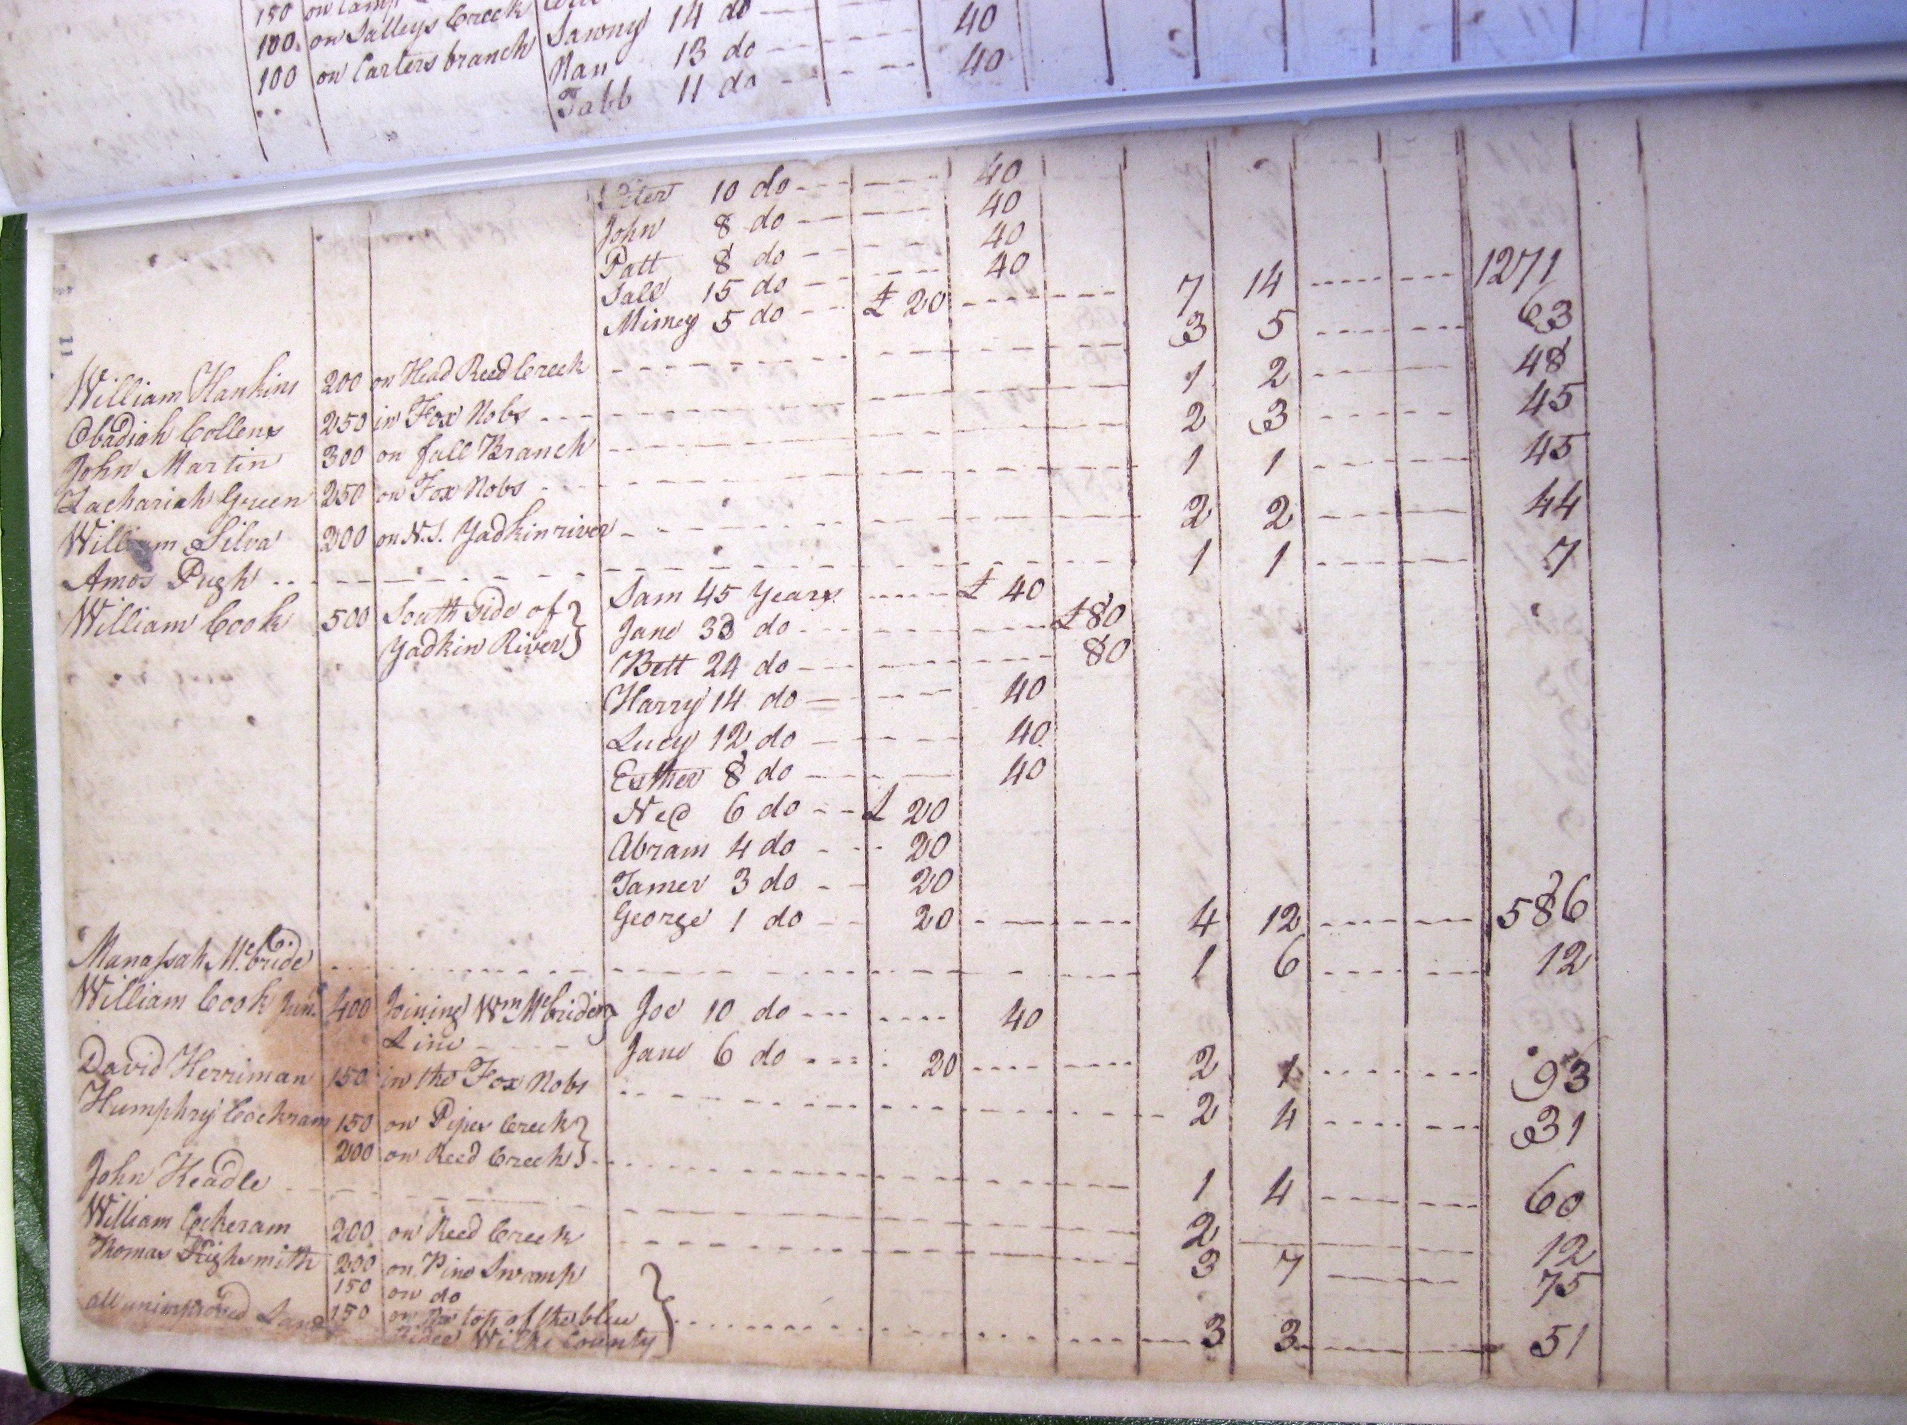 150 on
100 on Salleys Creek Sawny 14 do 40
100 on Carters branch Nan 13 do 40
Tabb 11 do
Peter 10 do 40
John 8 do 40
Patt 8 do 40
Sall 15 do 40
Mimey 5 do £ 20 7 14 1271
William Hankins 200 on Head Reed Creek 3 5 63
Obadiah Collens 250 in Fox Nobs 1 2 48
John Martin 300 on fall Branch 2 3 45
Zachariah Green 250 on Fox Nobs 1 1 45
William Silva 200 on N.S. Yadkin river 2 2 44
Amos Pugh 1 1 7
William Cook 500 South Side of Sam 45 Years £ 40
Yadkin River Jane 33 do £80
Bett 24 do 80
Harry 14 do 40
Lucy 12 do 40
Esther 8 do 40
Ned 6 do £ 20
Abram 4 do 20
Tamer 3 do 20
George 1 do 20 4 12 586
Manassah McBride 1 6 12
William Cook Jun. 400 Joining Wm McBride's Joe 10 do 40
Line Jane 6 do 20 2 1 93
David Herriman 150 in the Fox Nobs 2 4 31
Humphry Cockram 150 on Pipes Creek
200 on Reed Creek 1 4 60
John Headle 2 12
William Cockeram 200 on Reed Creek 3 7 75
Thomas Highsmith 200 on Pine Swamp
150 on do
all unimproved Land 150 on the top of the blue
Ridee Wilks County 3 3 51